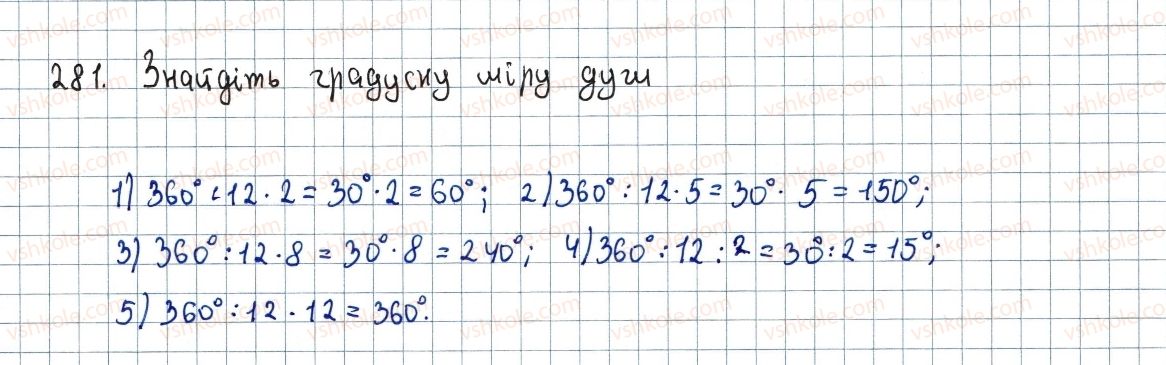 281. Знайдіть градусну міру дуги
1) 360° : 12 · 2 = 30° · 2 = 60°; 2) 360° : 12 · 5 = 30° · 5 = 150°;
3) 360° : 12 · 8 = 30° · 8 = 240°; 4) 360° : 12 : 2 = 30° : 2 = 15°;
5) 360° : 12 · 12 = 360°.